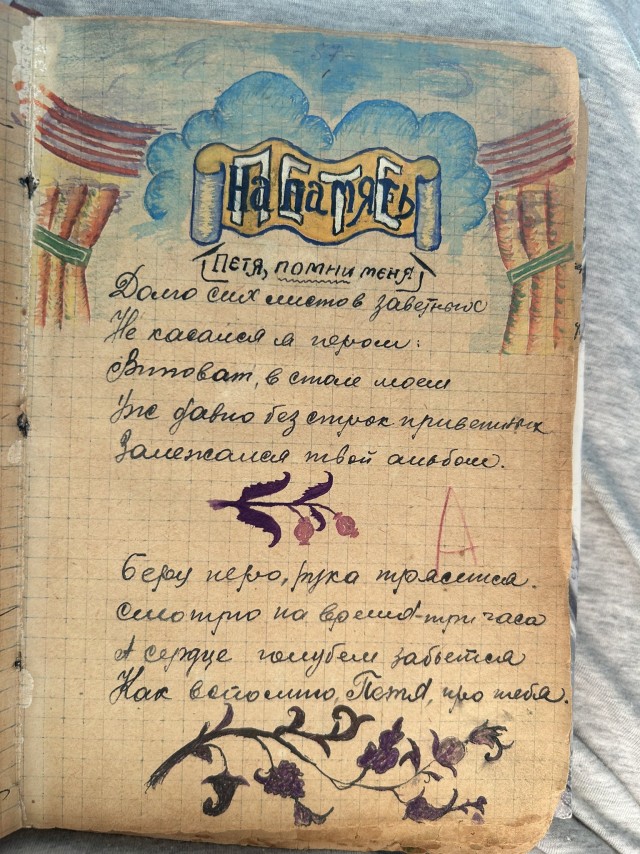 ПЕТЕ
На память
(Петя, помни меня)
Долго сих листов заветных
Не касался я пером:
Виноват, в столе моем
Уж давно без строк приветных
Залежался твой альбом.
А
Беру перо, рука трясется.
Смотрю на время-три часа
А сердце голубем забьется
Как вспомню, Петя, про тебя.